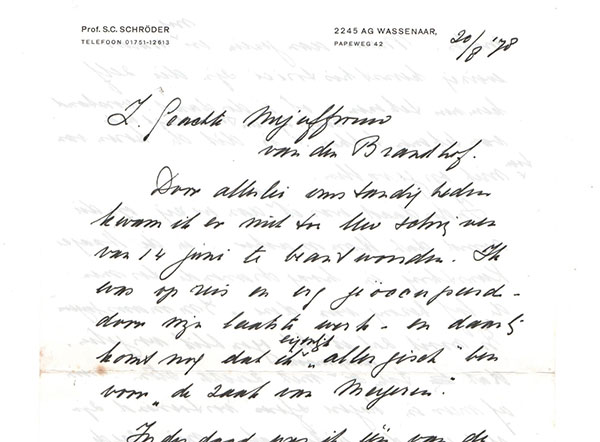 Prof. S.C. SCHRÖDER
TELEFOON 01751-12613
2245 AG WASSENAAR,
PAPEWEG 42
20/8 '78
Z. Geachte Mejuffrouw
van den Brandhof.
Door allerlei omstandigheden
kwam ik er niet toe Uw schrijven
van 14 juni te beantwoorden. Ik
was op reis en erg geöccupeerd
door mijn laatste werk - en daarbij
komt nog dat ik eigenlijk „allergisch" ben
voor „de zaak van Meegeren".
Inderdaad was ik één van de